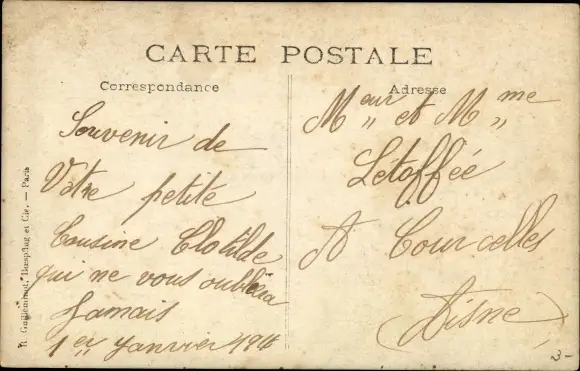 CARTE POSTALE
Correspondance
Adresse
Souvenir de
Votre petite
Cousine Clotilde
qui ne vous oubliera
Jamais
1er Janvier
Meur et Mme
Letoffée
A Courcelles
(Aisne)
R. Guilleminot, Bœspflug et Cie. — Paris
3-